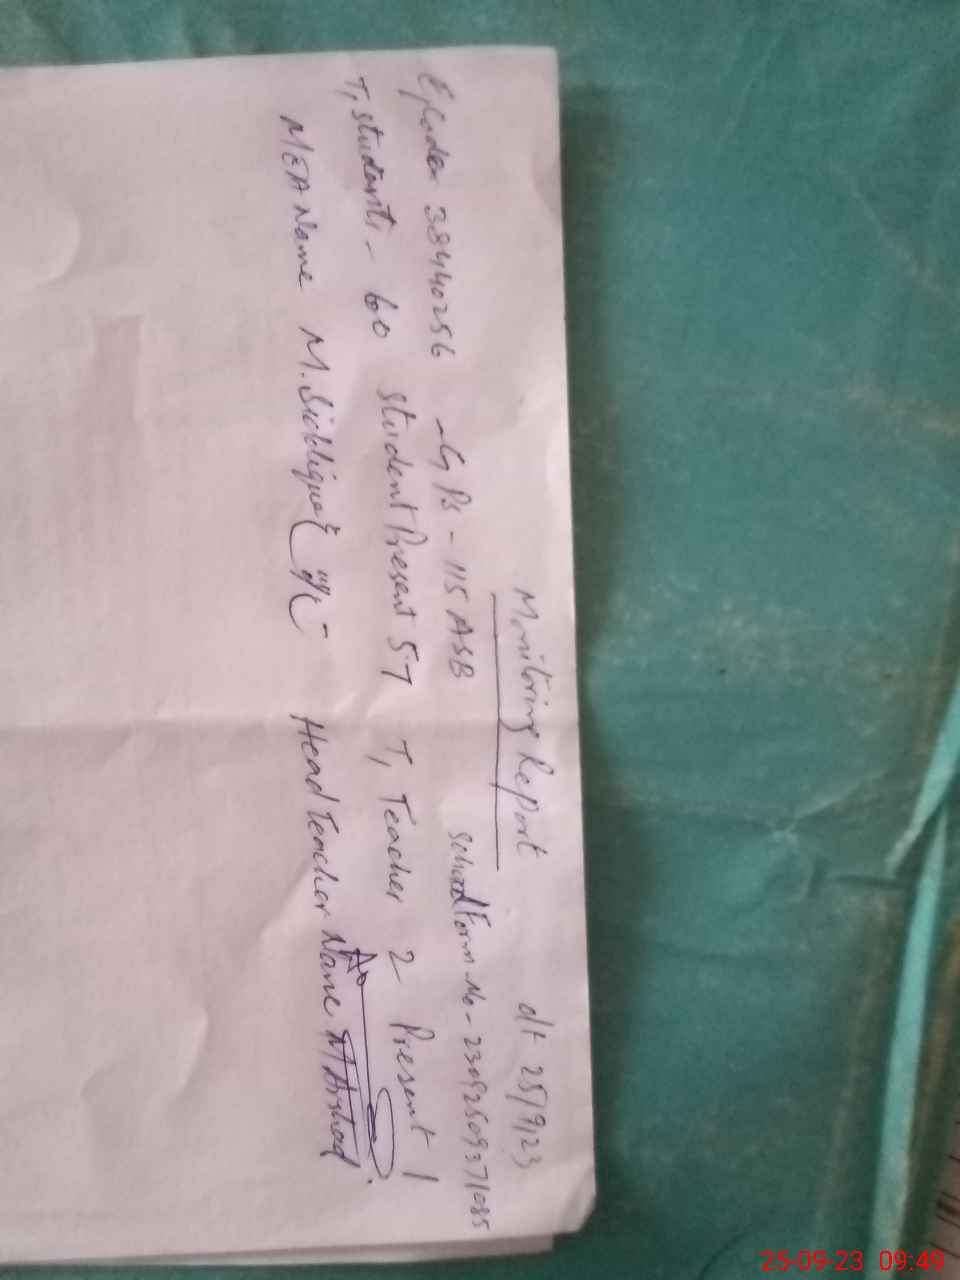 Monitoring Report dt 25/9/23
E, Code 38440256 - GPS - 115 ASB School Form No - 23092509371085
T, Students - 60 Student Present 57 T, Teacher 2 Present 1
MEA Name M. Siddique Head Teacher Name M Arshad
25-09-23 09:49